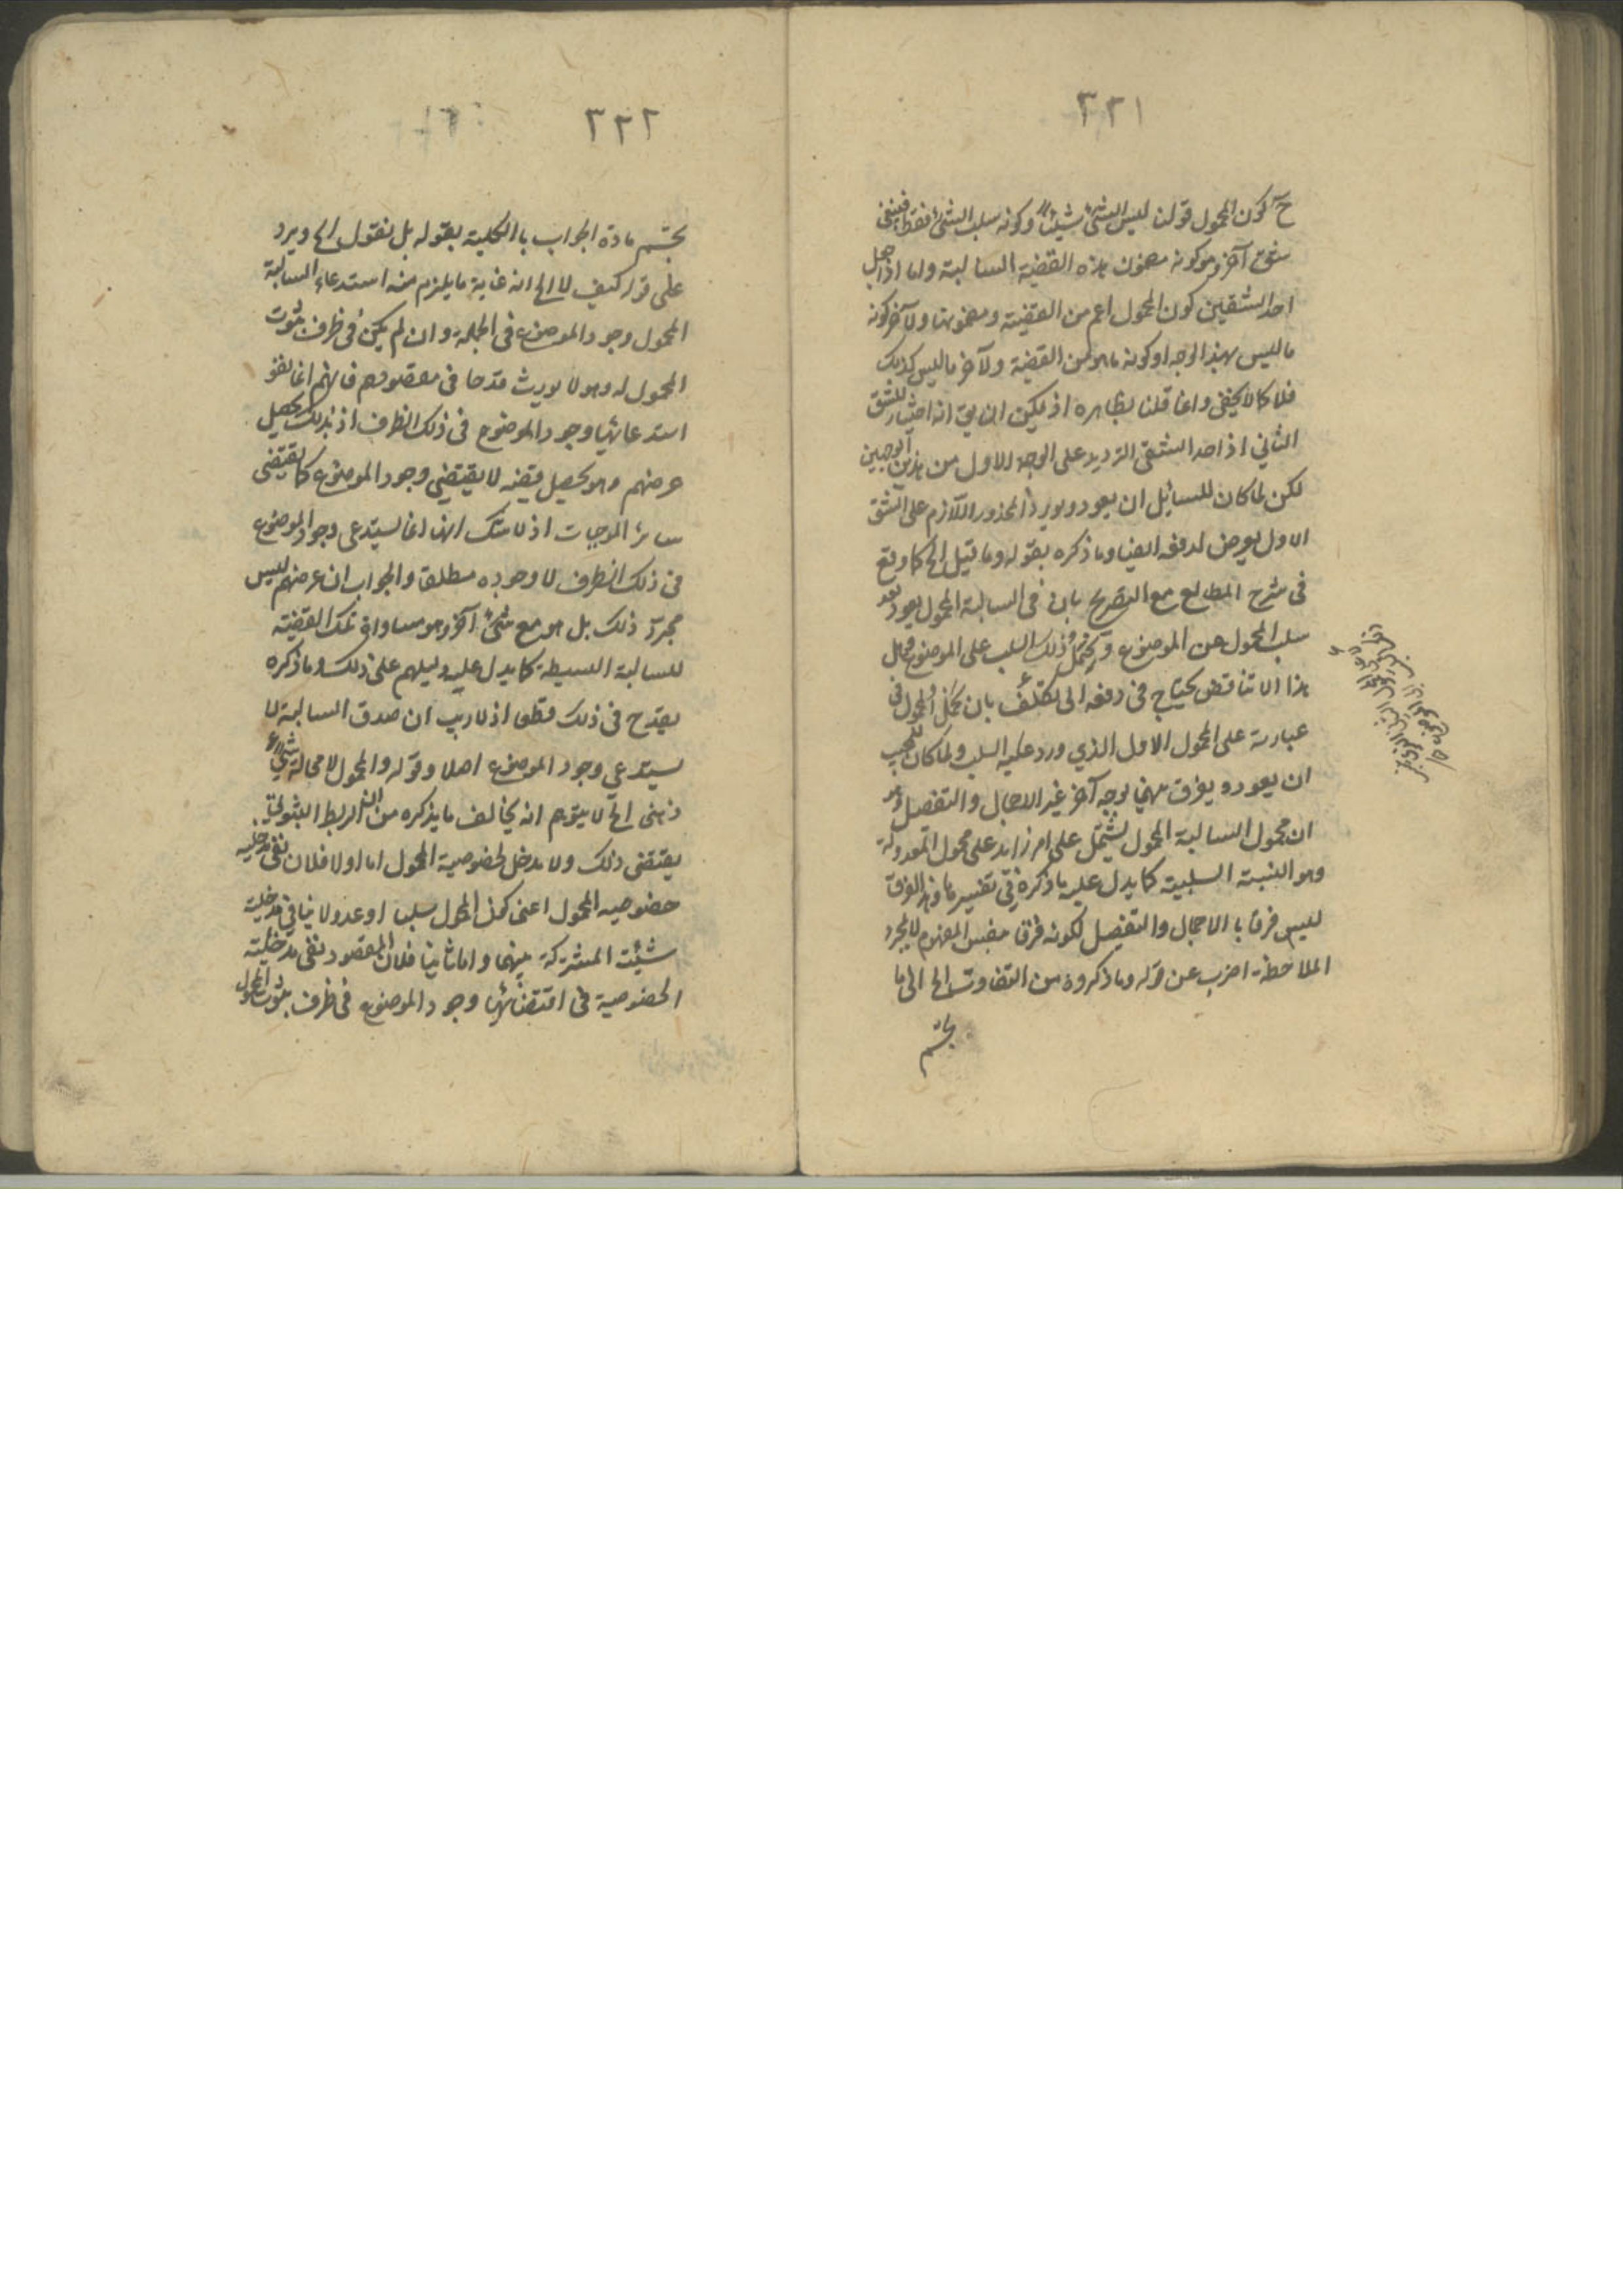 ٣٢١
ح كون المحمول قولنا ليس الشئ شيئا وكونه سلب الشئ فقط فينفى
شق آخر وهو كونه مضمون هذه القضية السالبة واما اذا جعل
احد الشقين كون المحمول اعم من القضية ومضمونها والآخر كونه
ما ليس بهذا الوجه او كونه ما هو من القضية والآخر ما ليس كذلك
فلا كما لا يخفى وانما قلنا بظاهره اذ يمكن ان يق انه اختيار للشق
الثاني اذ احد الشقى الترديد على الوجه الاول من هذين الوجهين
لكن لما كان للسائل ان يعود ويورد المحذور اللازم على الشق
الاول تعرض لدفعه ايضا وما ذكره بقوله وما قيل الخ كما وقع
فى شرح المطالع مع التصريح بان فى السالبة المحمول يعود بعد
سلب المحمول عن الموضوع ويحمل ذلك السلب على الموضوع
هذا التناقض يحتاج فى دفعه الى تكلف بان يحمل المحمول فى
عبارته على المحمول الاول الذي ورد عليه السلب ولما كان للمجيب
ان يعود ويفرق بينهما بوجه آخر غير الاجمال والتفصيل وهو
ان محمول السالبة المحمول يشتمل على امر زايد على محمول المعدولة
وهو النسبة السلبية كما يدل عليه ما ذكره فى تفسيرها وهذا الفرق
ليس فرقا با الاجمال والتفصيل لكونه فرقا بنفس المفهوم لا بمجرد
الملاحظة اضرب عن قوله وما ذكروه من التفاوت الخ الى ما
يحسم
٣٢٢
يحسم مادة الجواب با الكلية بقوله بل نقول الخ ويرد
على قوله كيف لا الخ انه غاية ما يلزم منه استدعاء السالبة
المحمول وجود الموضوع فى الجملة وان لم يكن فى ظرف ثبوت
المحمول له وهو لا يورث قدحا فى مقصودهم فانهم انما نفوا
استدعائها وجود الموضوع فى ذلك الظرف اذ بذلك يحصل
غرضهم وهو تحصيل قضية لا يقتضى وجود الموضوع كما يقتضى
سائر الموجبات اذ لا شك انها انما يستدعى وجود الموضوع
فى ذلك الظرف لا وجوده مطلقا والجواب ان غرضهم ليس
مجرد ذلك بل هو مع شئ آخر وهو مساواة تلك القضية
للسالبة البسيطة كما يدل عليه دليلهم على ذلك وما ذكره
يقدح فى ذلك قطعا اذ لا ريب ان صدق السالبة لا
يستدعي وجود الموضوع اصلا وقوله والمحمول لا محالة شئ
ذهنى الخ لا يتوهم انه يخالف ما يذكره من ان الربط الثبوتى
يقتضى ذلك ولا مدخل لخصوصية المحمول اما اولا فلان نفى مدخلية
خصوصية المحمول اعنى كون المحمول سلبا او عدولا ينافى مدخلية
شيئيت المشتركة بينهما واما ثانيا فلان المقصود نفى مدخلية
الخصوصية فى اقتضائها وجود الموضوع فى ظرف ثبوت المحمول